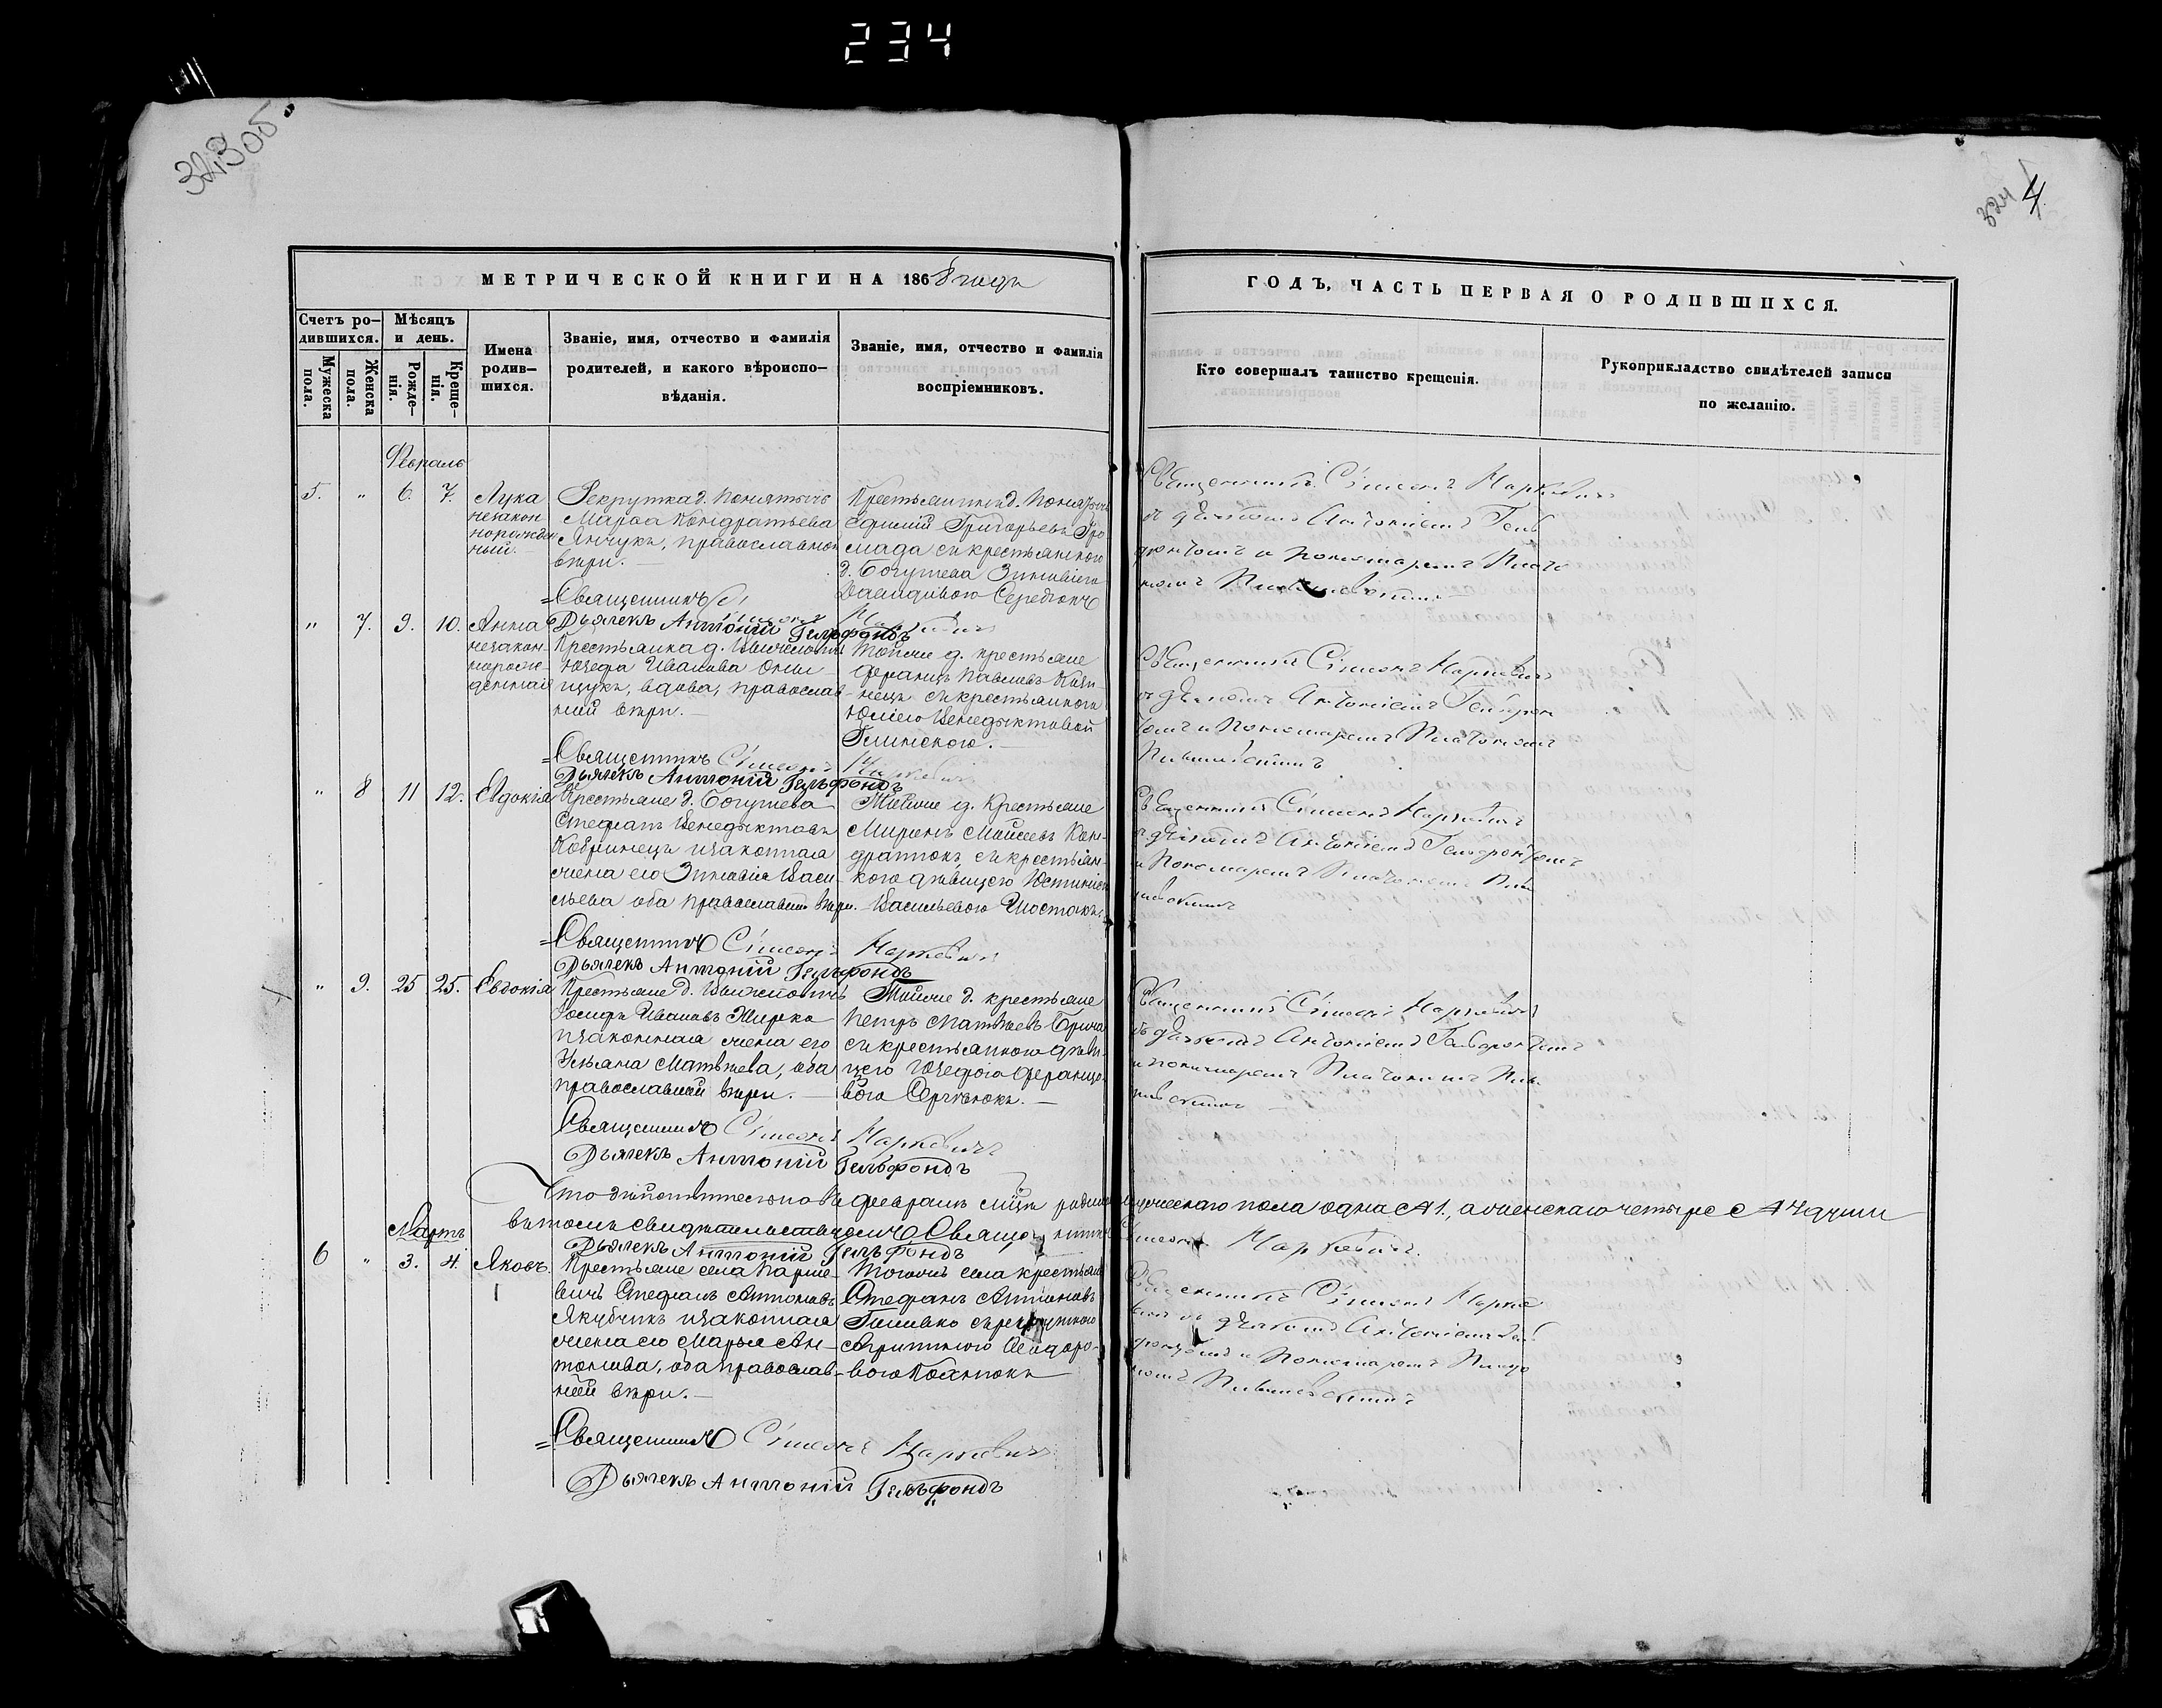 234
323об
324 4
МЕТРИЧЕСКОЙ КНИГИ НА 1868 года
ГОДЪ, ЧАСТЬ ПЕРВАЯ О РОДИВШИХСЯ.
Счетъ ро-
дившихся.
Мужеска
пола.
Женска
пола.
Мѣсяцъ
и день.
Рожде-
нія.
Креще-
нія.
Имена
родив-
шихся.
Званіе, имя, отчество и фамилія
родителей, и какого вѣроиспо-
вѣданія.
Званіе, имя, отчество и фамилія
воспріемниковъ.
Кто совершалъ таинство крещенія.
Рукоприкладство свидѣтелей записи
по желанію.
Февраль
5. " 6. 7.
Лука
незакон
норожден
ный.
Рекрутка д.
Марѳа Кондратьева
православной
вѣри.
Григорьевъ Гро-
мада съ крестьянкою
д. Богушева Зиновіею
Священникъ Сімеонъ Маркевичъ
съ дьячкомъ Антоніемъ Гель
фондомъ и пономаремъ Плато
номъ
Священникъ Сімеонъ Маркевичъ
Дьячекъ Антоній Гельфондъ
" 7. 9. 10.
Анна
незакон-
норож-
денная
Крестьянка д.
Юзефа Иванова
вдова, православ-
ной вѣри.
Тойже д. крестьяне
Францъ Павловъ
съ крестьянкою
Юліею Венедыктовой
Глинскою.
Священникъ Сімеонъ Маркевичъ
съ дьячкомъ Антоніемъ Гельфон
томъ и пономаремъ Платономъ
Священникъ Сімеонъ Маркевичъ
Дьячекъ Антоній Гельфондъ
" 8 11 12.
Евдокія
Крестьяне д. Богушева
Стефанъ Венедыктовъ
Кобринецъ и законная
жена его Зиновія Васи-
льева оба православной вѣри.
Тойже д. Крестьяне
Миронъ Моисеевъ Кон-
дратюкъ, съ крестьян-
кою дѣвицею Юстиніею
Васильевою Шостакъ.
Священникъ Сімеонъ Маркевичъ
съ дьячкомъ Антоніемъ Гельфондомъ
и Пономаремъ Платономъ
Священникъ Сімеонъ Маркевичъ
Дьячекъ Антоній Гельфондъ
" 9. 25 25.
Евдокія
Крестьяне д.
Іосифъ Ивановъ Жирко
и законная жена его
Ульяна Матвѣева, оба
православной вѣри.
Тойже д. крестьяне
Петръ Матвѣевъ
съ крестьянкою дѣви-
цею Юзефою Францо-
вою
Священникъ Сімеонъ Маркевичъ
съ дьячкомъ Антоніемъ Гельфондомъ
и пономаремъ Платономъ
Священникъ Сімеонъ Маркевичъ
Дьячекъ Антоній Гельфондъ
Что дѣйствительно въ февралѣ мцѣ мужескаго пола одна А 1., а женскаго четыре А 4 души
въ томъ свидѣтельствуемъ Священникъ Сімеонъ Маркевичъ.
Дьячекъ Антоній Гельфондъ
Мартъ
6 " 3. 4.
Яковъ.
Крестьяне села
Стефанъ Антоновъ
Якубчикъ и законная
жена его Марья Ан-
тонова, оба православ-
ной вѣри.
Тогоже села крестьяне
Стефанъ Антоновъ
съ рекруткою
Священникъ Сімеонъ Марке
вичъ съ дьячкомъ Антоніемъ Гель
фондомъ и Пономаремъ Плато
номъ
Священникъ Сімеонъ Маркевичъ
Дьячекъ Антоній Гельфондъ